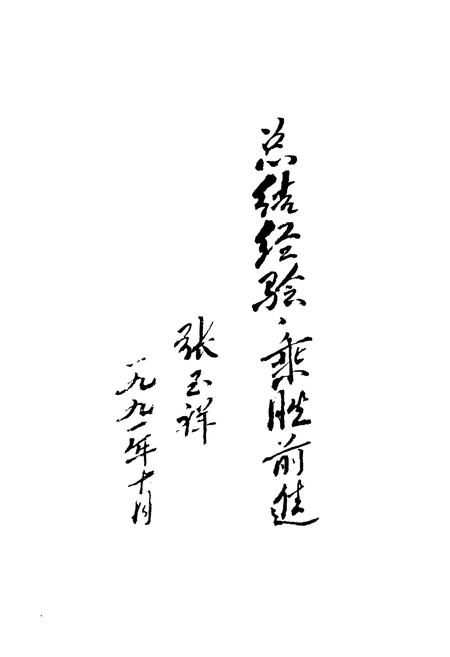 总结经验、乘胜前進
张玉祥
一九九一年十月